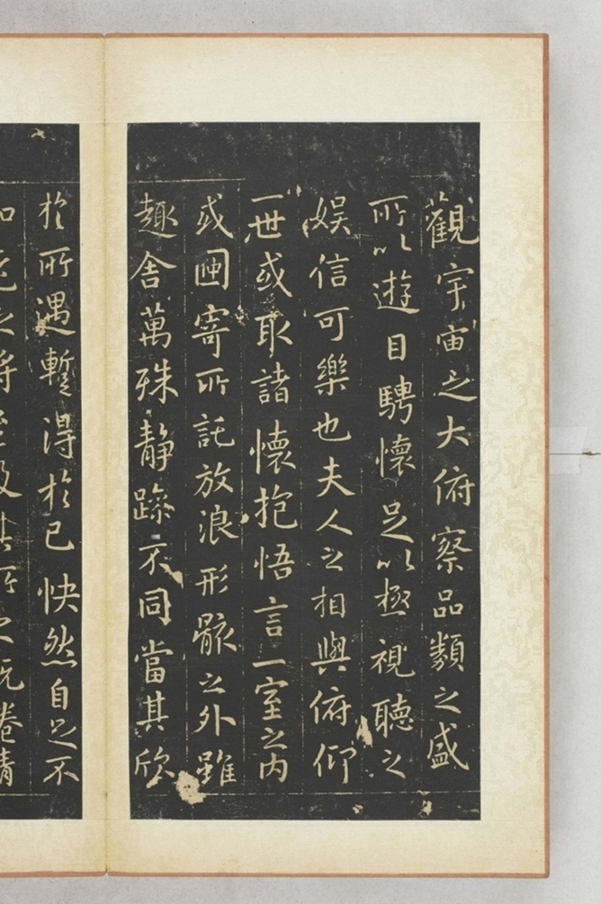 觀宇宙之大俯察品類之盛
所以遊目騁懷足以極視聽之
娛信可樂也夫人之相與俯仰
一世或取諸懷抱悟言一室之内
或因寄所託放浪形骸之外雖
趣舍萬殊静躁不同當其欣
於所遇蹔得於己怏然自足不
知老之將至及其所之既惓情